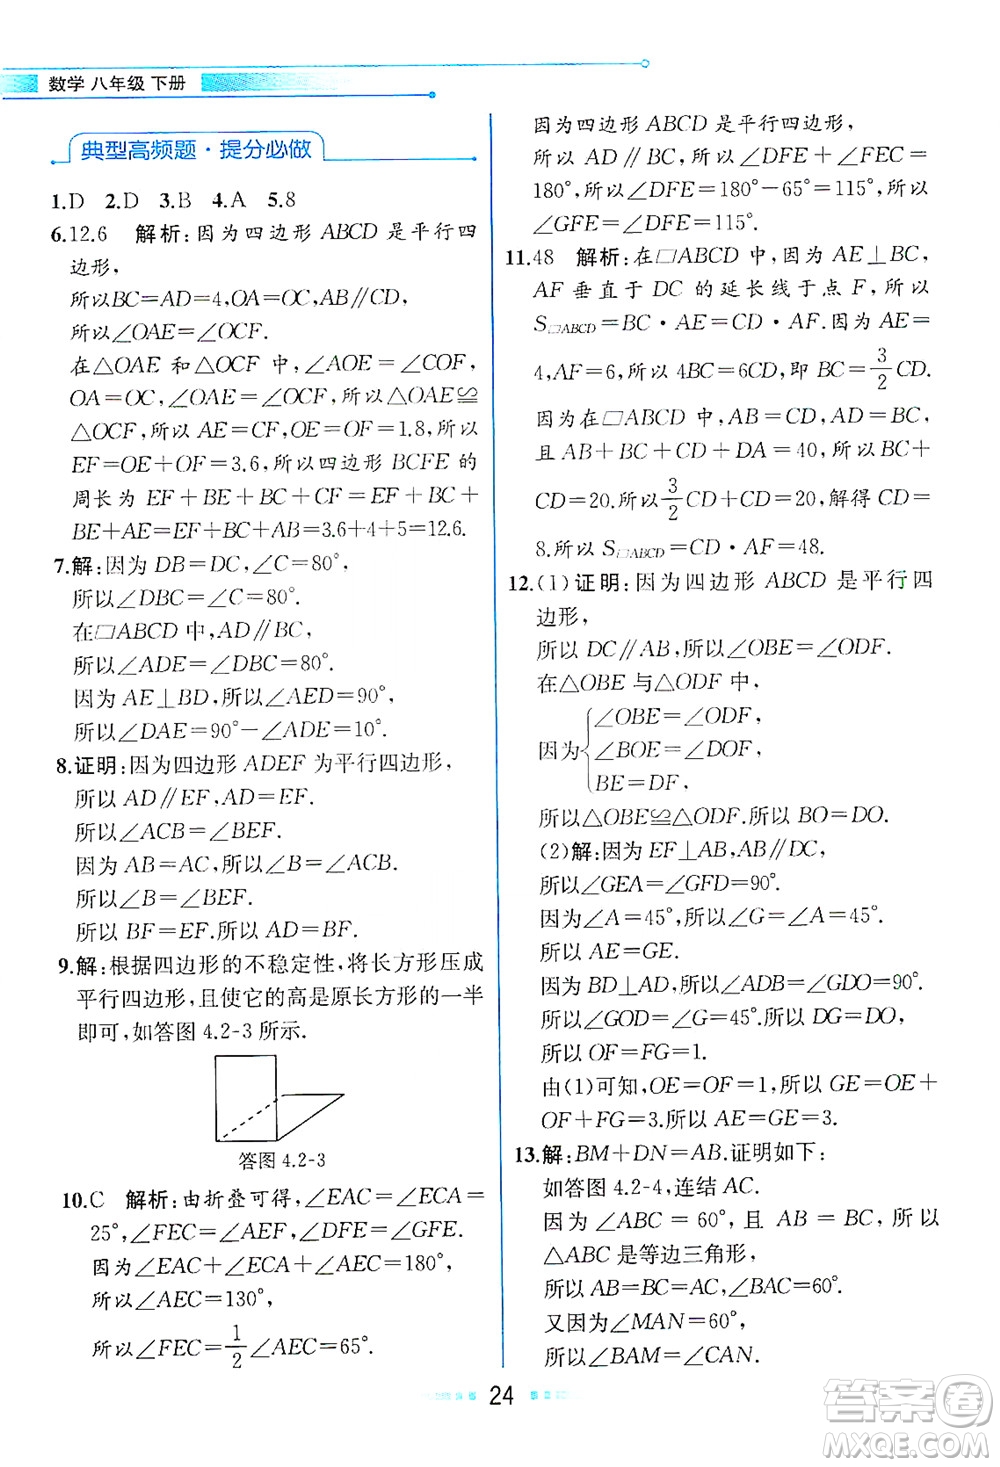 数学 八年级 下册
典型高频题·提分必做
1.D 2.D 3.B 4.A 5.8
6.12.6 解析:因为四边形 ABCD 是平行四
边形,
所以BC=AD=4,OA=OC,AB∥CD,
所以∠OAE=∠OCF.
在△OAE 和△OCF 中,∠AOE=∠COF,
OA=OC,∠OAE=∠OCF,所以△OAE≌
△OCF,所以 AE=CF,OE=OF=1.8,所以
EF=OE+OF=3.6,所以四边形 BCFE 的
周长为 EF+BE+BC+CF=EF+BC+
BE+AE=EF+BC+AB=3.6+4+5=12.6.
7.解:因为 DB=DC,∠C=80°,
所以∠DBC=∠C=80°.
在□ABCD 中,AD∥BC,
所以∠ADE=∠DBC=80°.
因为 AE⊥BD,所以∠AED=90°,
所以∠DAE=90°-∠ADE=10°.
8.证明:因为四边形 ADEF 为平行四边形,
所以 AD∥EF,AD=EF.
所以∠ACB=∠BEF.
因为 AB=AC,所以∠B=∠ACB.
所以∠B=∠BEF.
所以 BF=EF.所以 AD=BF.
9.解:根据四边形的不稳定性,将长方形压成
平行四边形,且使它的高是原长方形的一半
即可,如答图 4.2-3 所示.
答图 4.2-3
10.C 解析:由折叠可得,∠EAC=∠ECA=
25°,∠FEC=∠AEF,∠DFE=∠GFE.
因为∠EAC+∠ECA+∠AEC=180°,
所以∠AEC=130°,
所以∠FEC=1/2∠AEC=65°.
因为四边形 ABCD 是平行四边形,
所以 AD∥BC,所以∠DFE+∠FEC=
180°,所以∠DFE=180°-65°=115°,所以
∠GFE=∠DFE=115°.
11.48 解析:在□ABCD 中,因为 AE⊥BC,
AF 垂直于 DC 的延长线于点 F,所以
S□ABCD=BC·AE=CD·AF.因为 AE=
4,AF=6,所以 4BC=6CD,即 BC=3/2CD.
因为在□ABCD 中,AB=CD,AD=BC,
且 AB+BC+CD+DA=40,所以 BC+
CD=20.所以3/2CD+CD=20,解得 CD=
8.所以 S□ABCD=CD·AF=48.
12.(1)证明:因为四边形 ABCD 是平行四
边形,
所以 DC∥AB,所以∠OBE=∠ODF.
在△OBE 与△ODF 中,
∠OBE=∠ODF,
因为{∠BOE=∠DOF,
BE=DF,
所以△OBE≌△ODF.所以 BO=DO.
(2)解:因为 EF⊥AB,AB∥DC,
所以∠GEA=∠GFD=90°.
因为∠A=45°,所以∠G=∠A=45°.
所以 AE=GE.
因为 BD⊥AD,所以∠ADB=90°.
所以∠GOD=∠G=45°.所以 DG=DO,
所以 OF=FG=1.
由(1)可知,OE=OF=1,所以 GE=OE+
OF+FG=3.所以 AE=GE=3.
13.解:BM+DN=AB.证明如下:
如答图 4.2-4,连结 AC.
因为∠ABC=60°,且 AB=BC,所以
△ABC 是等边三角形,
所以 AB=BC=AC,∠BAC=60°.
又因为∠MAN=60°,
所以∠BAM=∠CAN.
24
答案圈
MXQE.COM